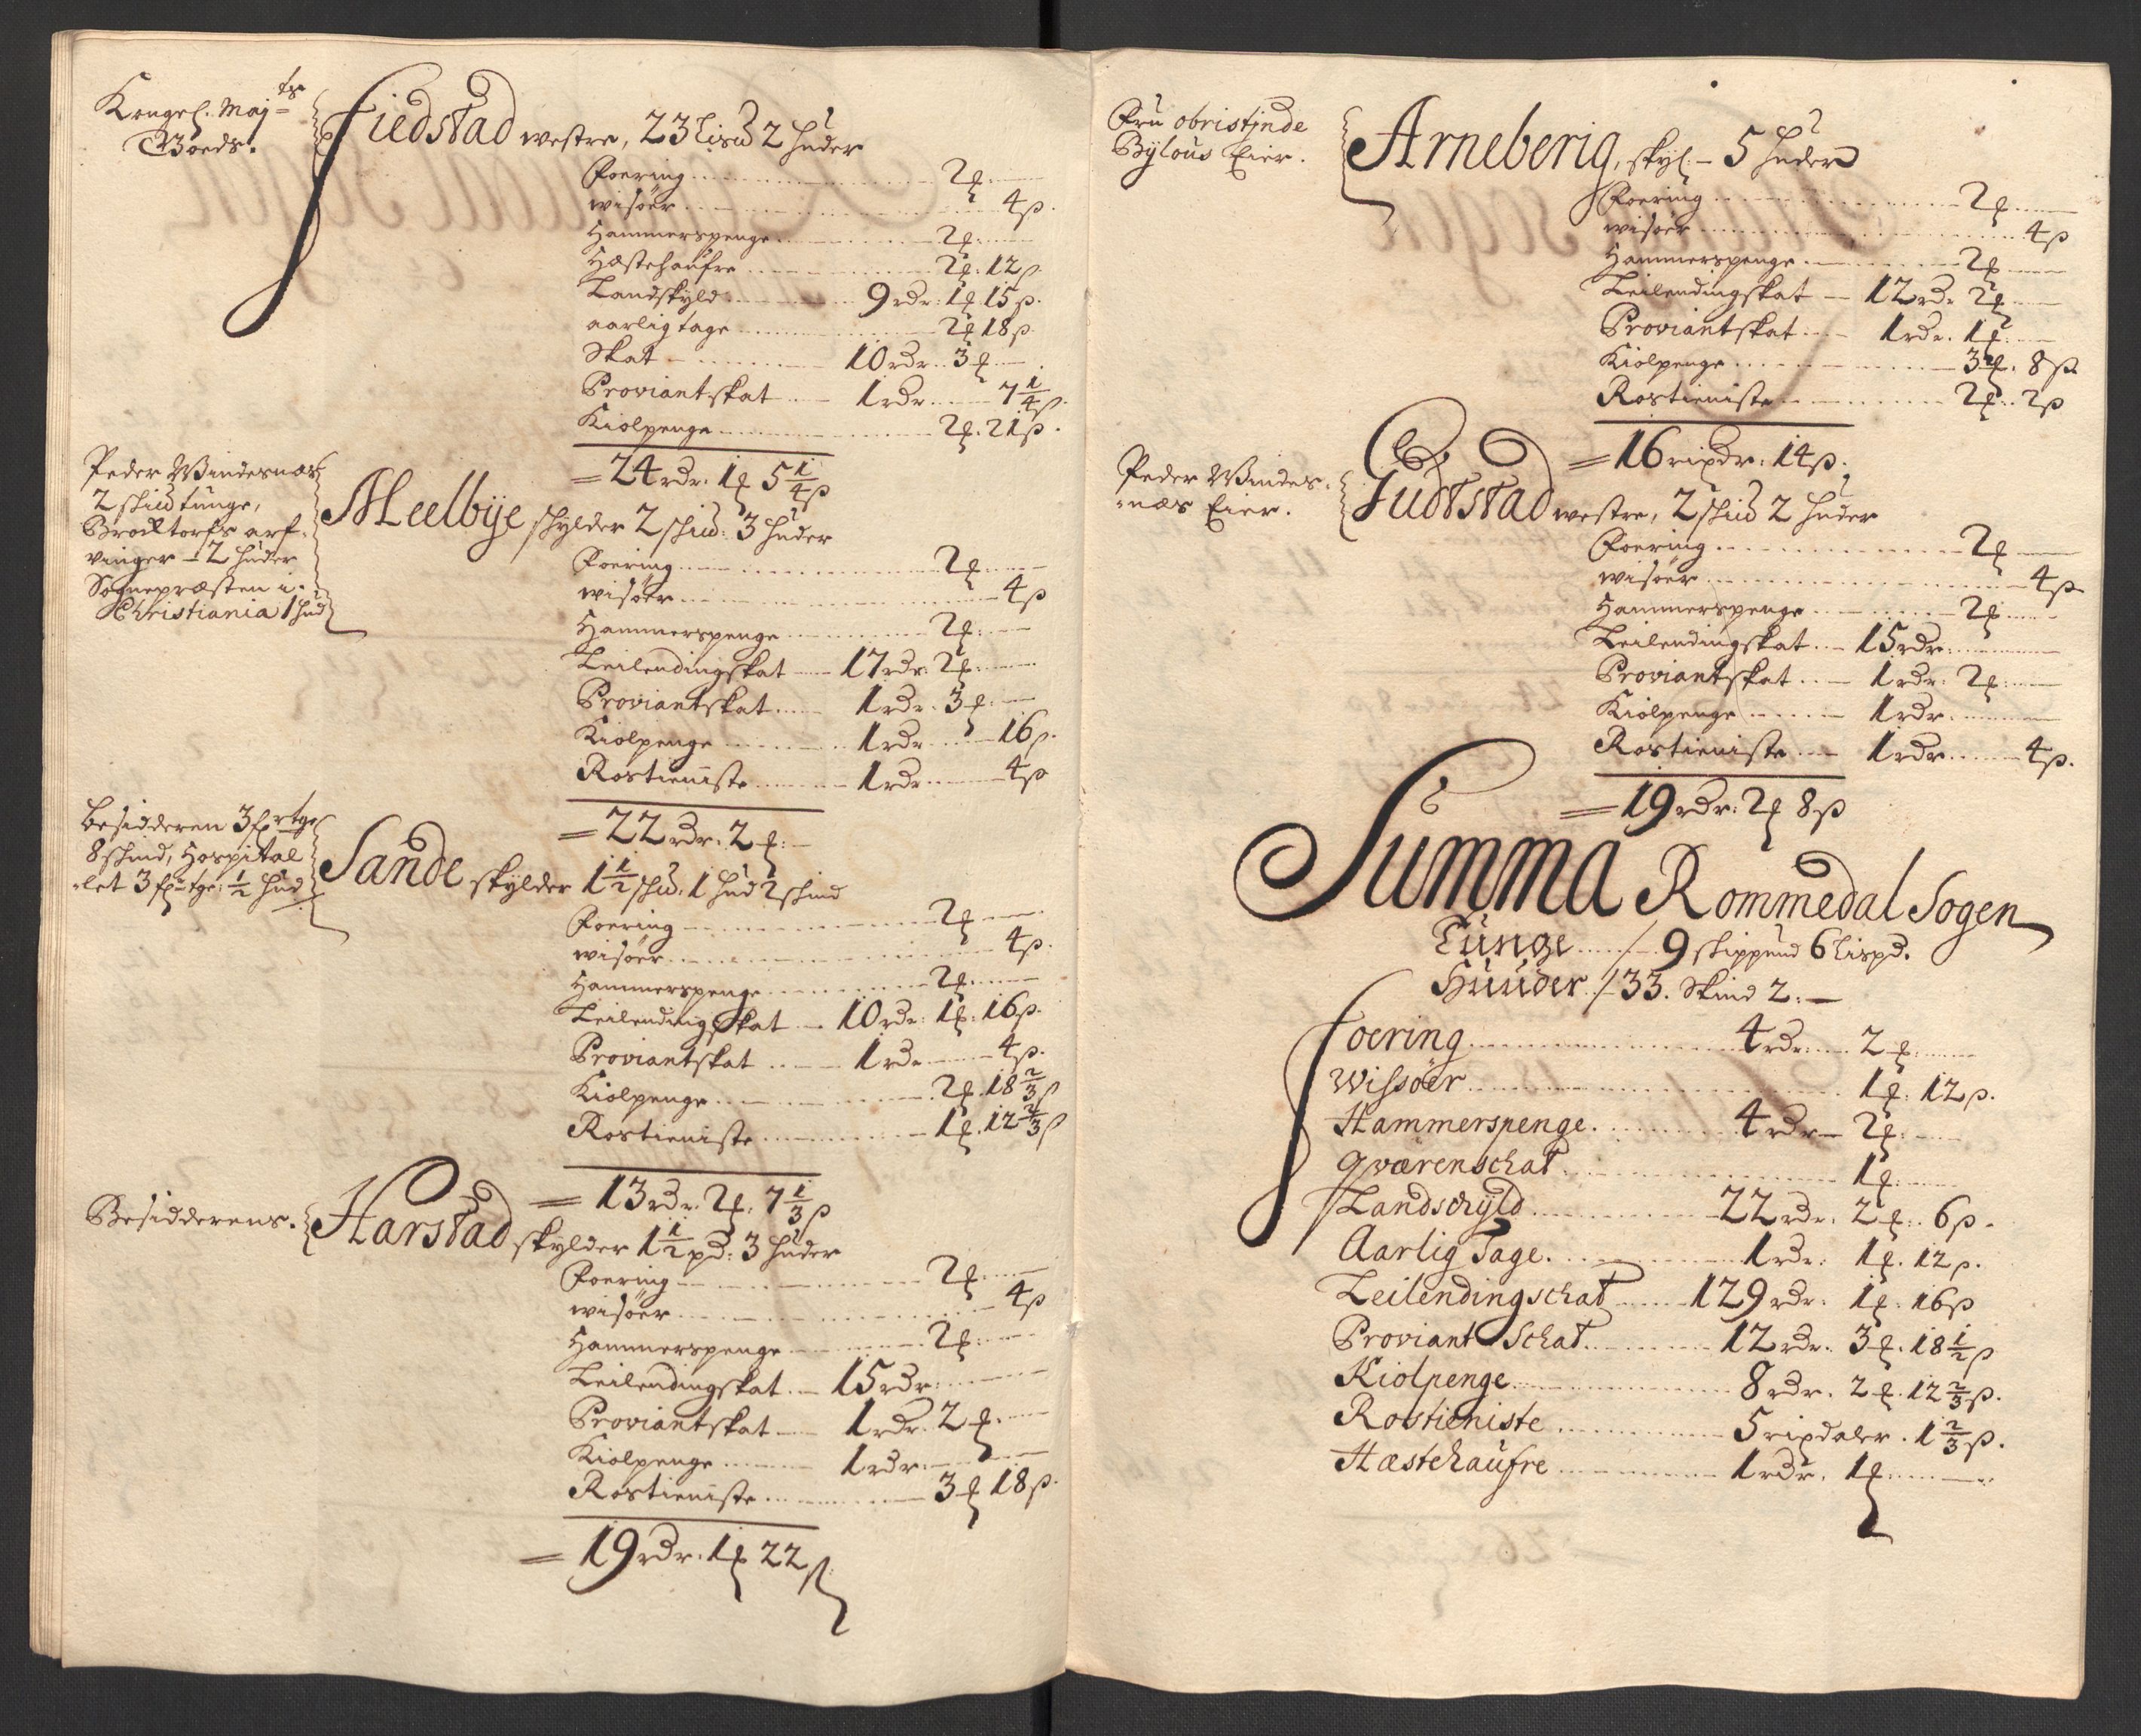 Kongel. Maj<sup>ts</sup>
Goeds.
Fiedstad westre, 23 Lispd 2 huder
Foering 2 ƒ
wisöer 4 β.
Hammerspenge 2 ƒ
Hæstehaufre 2 ƒ. 12 β.
Landskyld 9 rdr. 1 ƒ 15 β.
aarlig tage 2 ƒ 18 β.
Skat 10 rdr. 3 ƒ
Proviantskat 1 rdr. 7 1/4 β.
Kiolpenge 2 ƒ. 21 β.
= 24 rdr. 1 ƒ 5 1/4 β
Peder Windesnæs
2 skud tunge,
Brochtorfs arf-
vinger - 2 huder
Sognepræsten i
Christiania 1 hud
Meelbye skylder 2 skud: 3 huder
Foering 2 ƒ
wisöer 4 β
Hammerspenge 2 ƒ
Leilendingskat 17 rdr. 2 ƒ
Proviantskat 1 rdr. 3 ƒ
Kiolpenge 1 rdr. 16 β.
Rostieniste 1 rdr. 4 β
= 22 rdr. 2 ƒ.
Besidderen 3 f<sup>r</sup>tge
8 skind, Hospital
-let 3 f tge: 1/2 hud
Sande skylder 1 1/2 skud. 1 hud 2 skind
Foering 2 ƒ
wisöer 4 β.
Hammerspenge 2 ƒ
Leilendingskat 10 rdr. 1 ƒ. 16 β.
Proviantskat 1 rdr. 4 β.
Kiolpenge 2 ƒ. 18 2/3 β
Rostieniste 1 ƒ. 12 2/3 β
= 13 rdr. 2 ƒ. 7 1/3 β
Besidderens.
Harstad skylder 1 1/2 pd: 3 huder
Foering 2 ƒ
wisöer 4 β
Hammerspenge 2 ƒ
Leilendingskat 15 rdr.
Proviantskat 1 rdr. 2 ƒ.
Kiolpenge 1 rdr.
Rostieniste 3 ƒ 18 β.
= 19 rdr. 1 ƒ 22 β
Fru obristinde
Bylous Eier.
Arneberig, skyl. - 5 huder
Foering 2 ƒ
wisöer 4 β
Hammerspenge 2 ƒ
Leilendingskat 12 rdr. 2 ƒ
Proviantskat 1 rdr. 1 ƒ.
Kiolpenge 3 ƒ. 8 β.
Rostieniste 2 ƒ. 2 β
= 16 ripdr. 14 β.
Peder Windes-
-næs Eier.
Judtstad westre, 2 skud 2 huder
Foering 2 ƒ
wisöer 4 β.
Hammerspenge 2 ƒ
Leilendingskat 15 rdr.
Proviantskat 1 rdr. 2 ƒ.
Kiolpenge 1 rdr.
Rostieniste 1 rdr. 4 β.
= 19 rdr. 2 ƒ 8 β
Summa Rommedal Sogen
Tunge 9 skippund 6 Lispd.
Huuder 33. Skind 2.
Foering 4 rdr. 2 ƒ.
Wissöer 1 ƒ. 12 β.
Hammerspenge. 4 rdr. 2 ƒ.
Qværenschat 1 ƒ.
Landschyld 22 rdr. 2 ƒ. 6 β.
Aarlig Tage. 1 rdr. 1 ƒ. 12 β.
Leilendingschat 129 rdr. 1 ƒ. 16 β
Proviant Schat 12 rdr. 3 ƒ. 18 1/2 β
Kiolpenge 8 rdr. 2 ƒ. 12 2/3 β.
Rostieniste 5 ripdaler. 1 2/3 β.
Hæstehaufre 1 rdr. 1 ƒ.